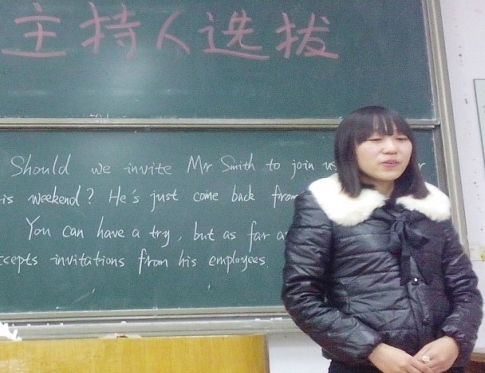 主持人选拔
Should we invite Mr Smith to join us
is weekend? He's just come back from
You can have a try, but as far a
ccepts invitations from his employees.